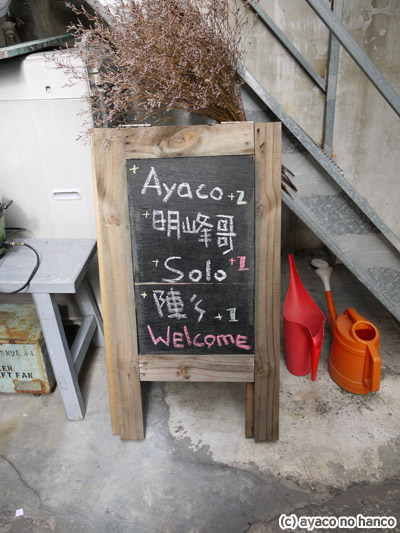 Ayaco +2
明峰哥
Solo +2
陳's +1
Welcome
(c) ayaco no hanco